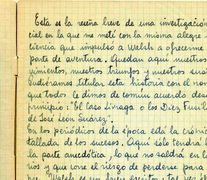 Esta es la reseña breve de una investigación
cial en la que me metí con la misma alegre
ciencia que impulsó a Walsh a ofrecerme
parte de aventura. Quedan aquí nuestros
quimientos, nuestros triunfos y nuestros
Pudiéramos titular esta historia con el
que todos le dimos de común acuerdo desde
principio: "El caso Livraga o los Diez Fusilados
de José León Suárez".
En los periódicos de la época está la crónica
tallada de los sucesos. Aquí sólo tendrá
la parte anecdótica, lo que no saldrá en l
rios y que corre el riesgo de perderse para